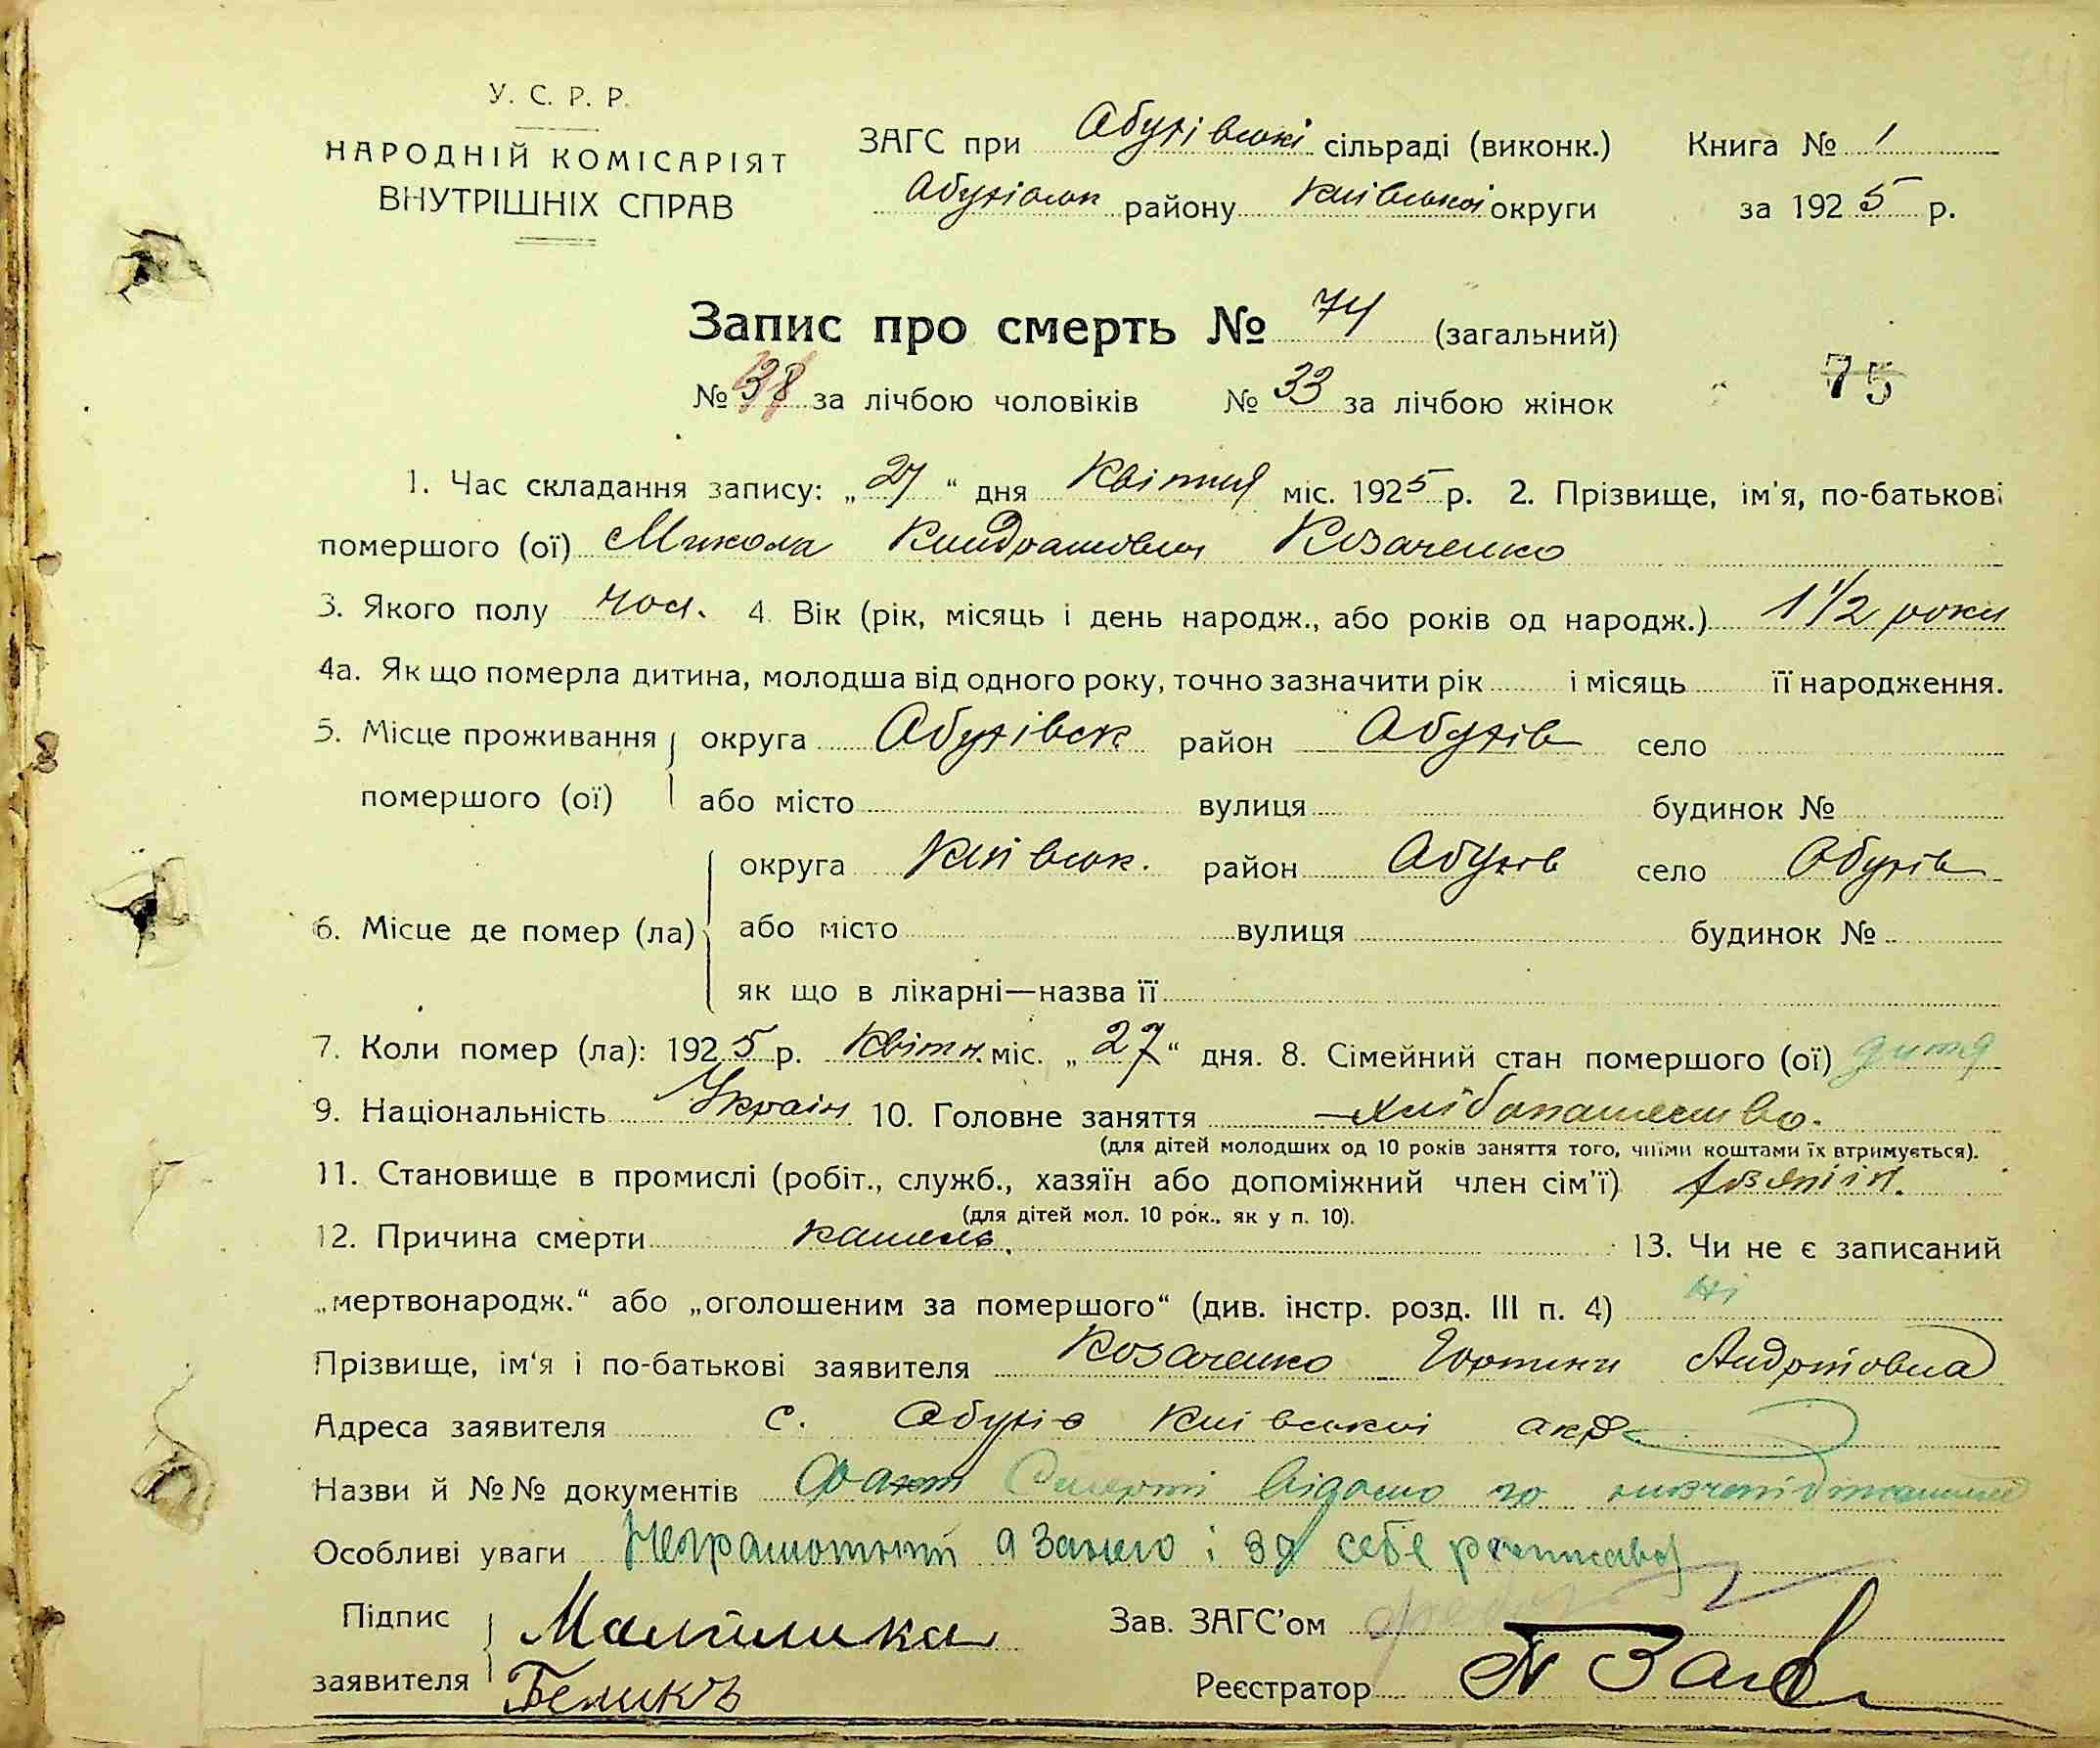 У. С. Р. Р.
НАРОДНІЙ КОМІСАРІЯТ
ВНУТРІШНІХ СПРАВ
ЗАГС при Абухівські сільраді (виконк.) Книга № 1
району Київської округи за 1925 р.
Запис про смерть № 74 (загальний)
№ 38 за лічбою чоловіків № 33 за лічбою жінок
75
1. Час складання запису: „27“ дня Квітня міс. 1925 р. 2. Прізвище, ім'я, по-батькові
помершого (ої) Микола Кондратович Козаченко
3. Якого полу чол. 4. Вік (рік, місяць і день народж., або років од народж.) 1 1/2 роки
4а. Як що померла дитина, молодша від одного року, точно зазначити рік і місяць її народження.
5. Місце проживання округа Абухівск район Абухів село
помершого (ої) або місто вулиця будинок №
округа Київськ. район Абухів село Абухів
6. Місце де помер (ла) або місто вулиця будинок №
як що в лікарні—назва її
7. Коли помер (ла): 1925 р. Квітн. міс. „27“ дня. 8. Сімейний стан помершого (ої) дитя
9. Національність Україн 10. Головне заняття хлібопашество.
(для дітей молодших од 10 років заняття того, чиїми коштами їх втримується).
11. Становище в промислі (робіт., служб., хазяїн або допоміжний член сім'ї) хозяіін.
(для дітей мол. 10 рок., як у п. 10).
12. Причина смерти кашель. 13. Чи не є записаний
„мертвонародж.“ або „оголошеним за помершого“ (див. інстр. розд. III п. 4) Ні
Прізвище, ім'я і по-батькові заявителя Козаченко
Адреса заявителя с. Абухів Київської окр
Назви й №№ документів Факт Смерті відомо
Особливі уваги Неграмотний а за себе
Підпис
заявителя Беликъ
Зав. ЗАГС'ом
Реєстратор